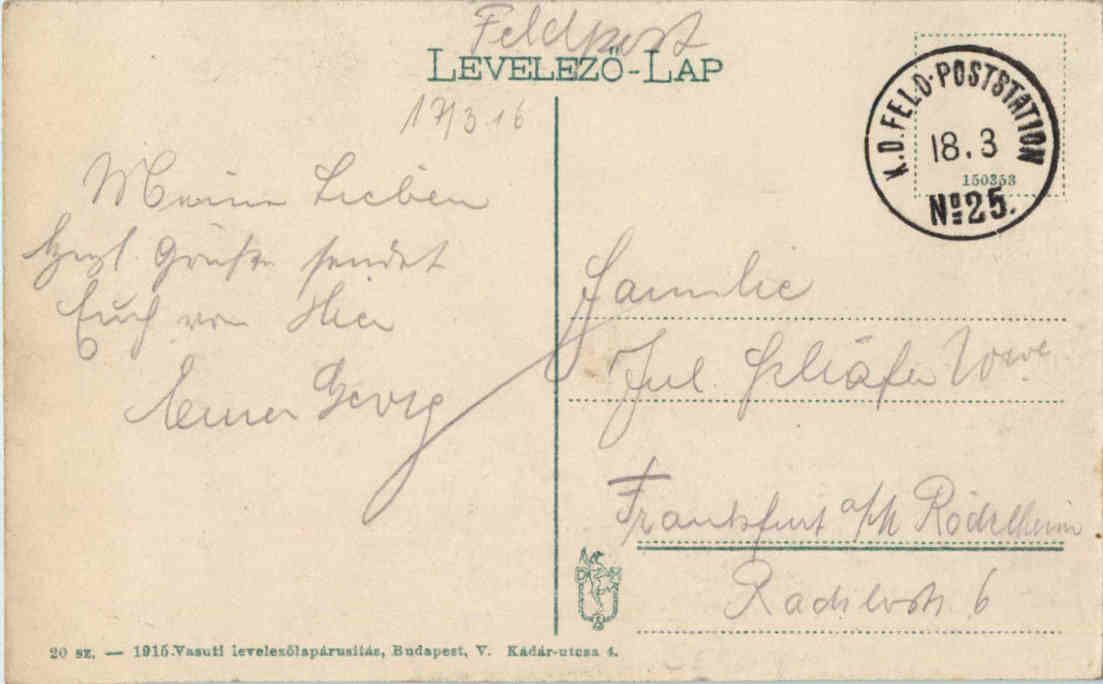 Feldpost
LEVELEZŐ-LAP
17/3.16
K.D. FELD-POSTSTATION
18.3
150353
№25.
Meine Lieben
Herzl. Grüße sendet
Euch von Hier
Euer Georg
Familie
Jul. Schäfer Wwe.
Frankfurt a/M Rödelheim
6
20 sz. — 1915. Vasuti levelezőlapárusitás, Budapest, V. Kádár-utcsa 4.